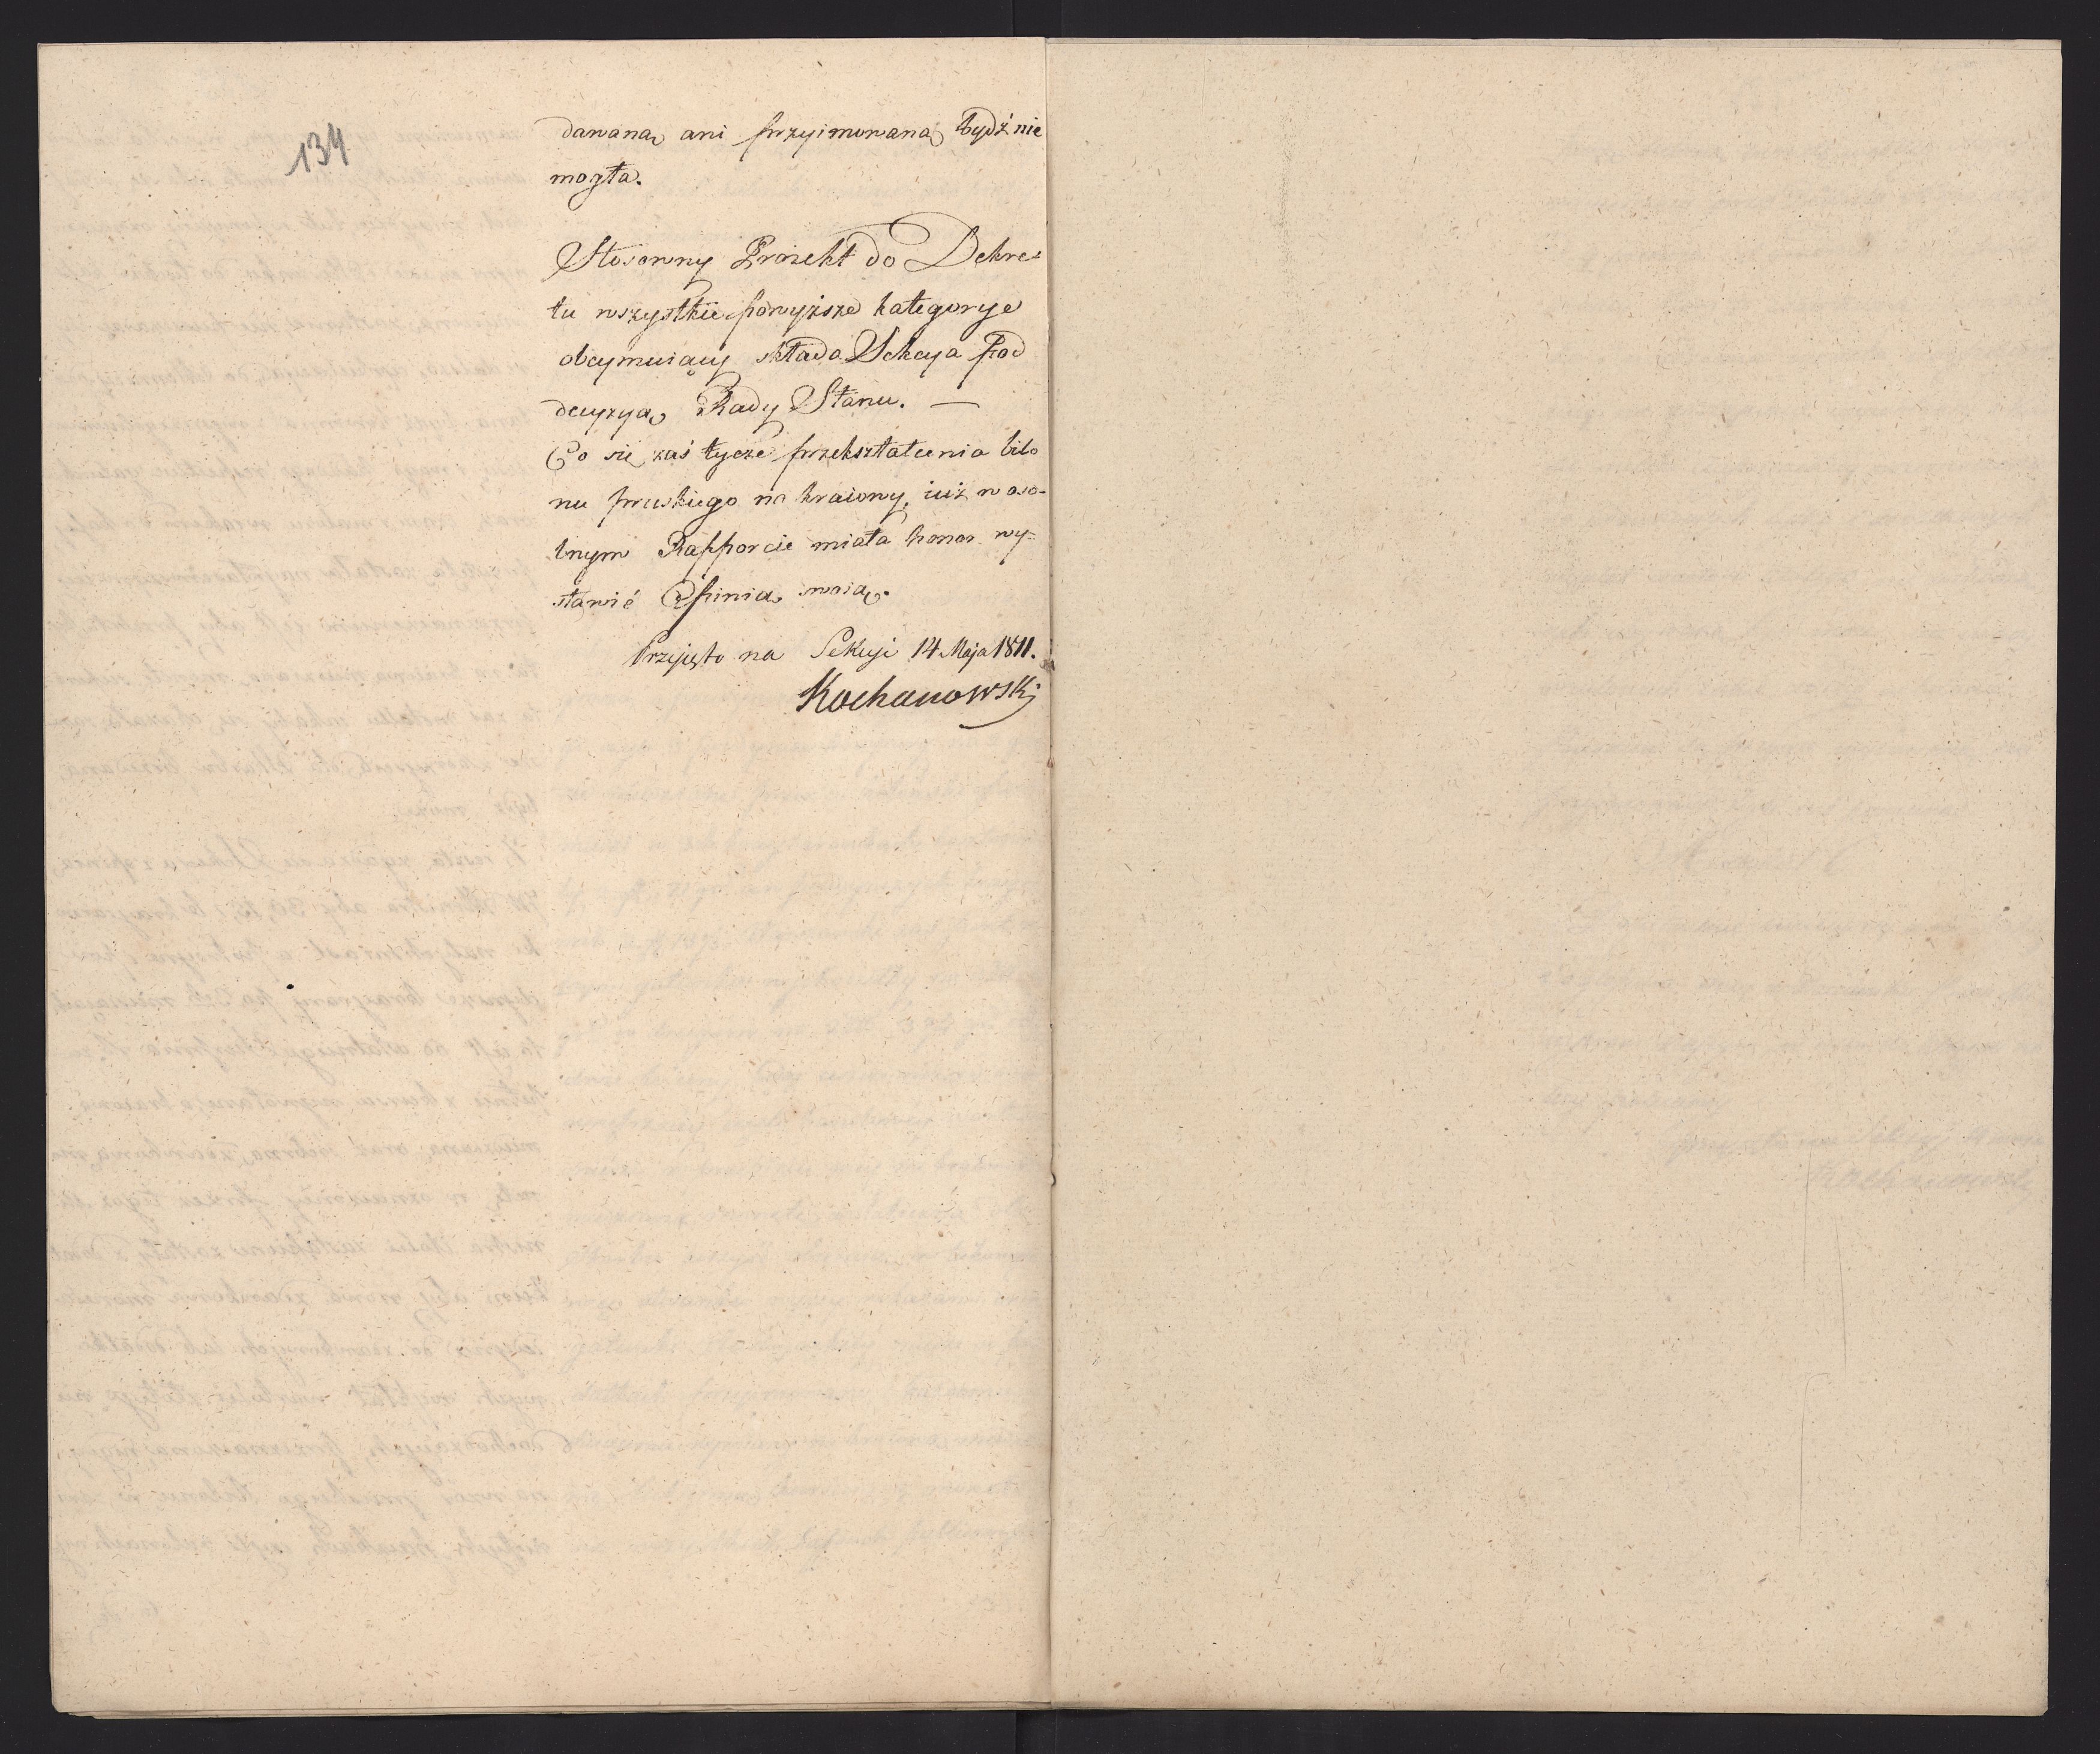 134
dawaną ani przyimowaną bydź nie
mogła.
Stosowny Proiekt do Dekre-
tu wszystkie powyższe kategorye
obeymuiący składa Sekcya pod
decyzyą Rady Stanu. —
Co się zaś tycze przekształcenia bilo
nu pruskiego na kraiowy, iuż w oso-
bnym Rapporcie miała honor wy-
stawić Opinią swoią.
Przyjęto na Sekcyi 14 Maja 1811.
Kochanowski